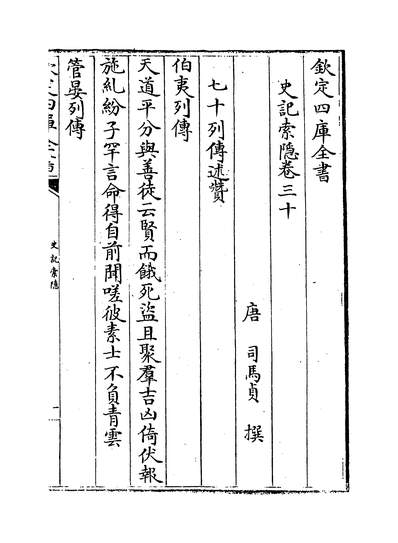 欽定四庫全書
史記索隱卷三十
唐 司馬貞 撰
七十列傳述贊
伯夷列傳
天道平分與善徒云賢而餓死盜且聚羣吉凶倚伏報
施糺紛子罕言命得自前聞嗟彼素士不負青雲
管晏列傳
史記索隱
一